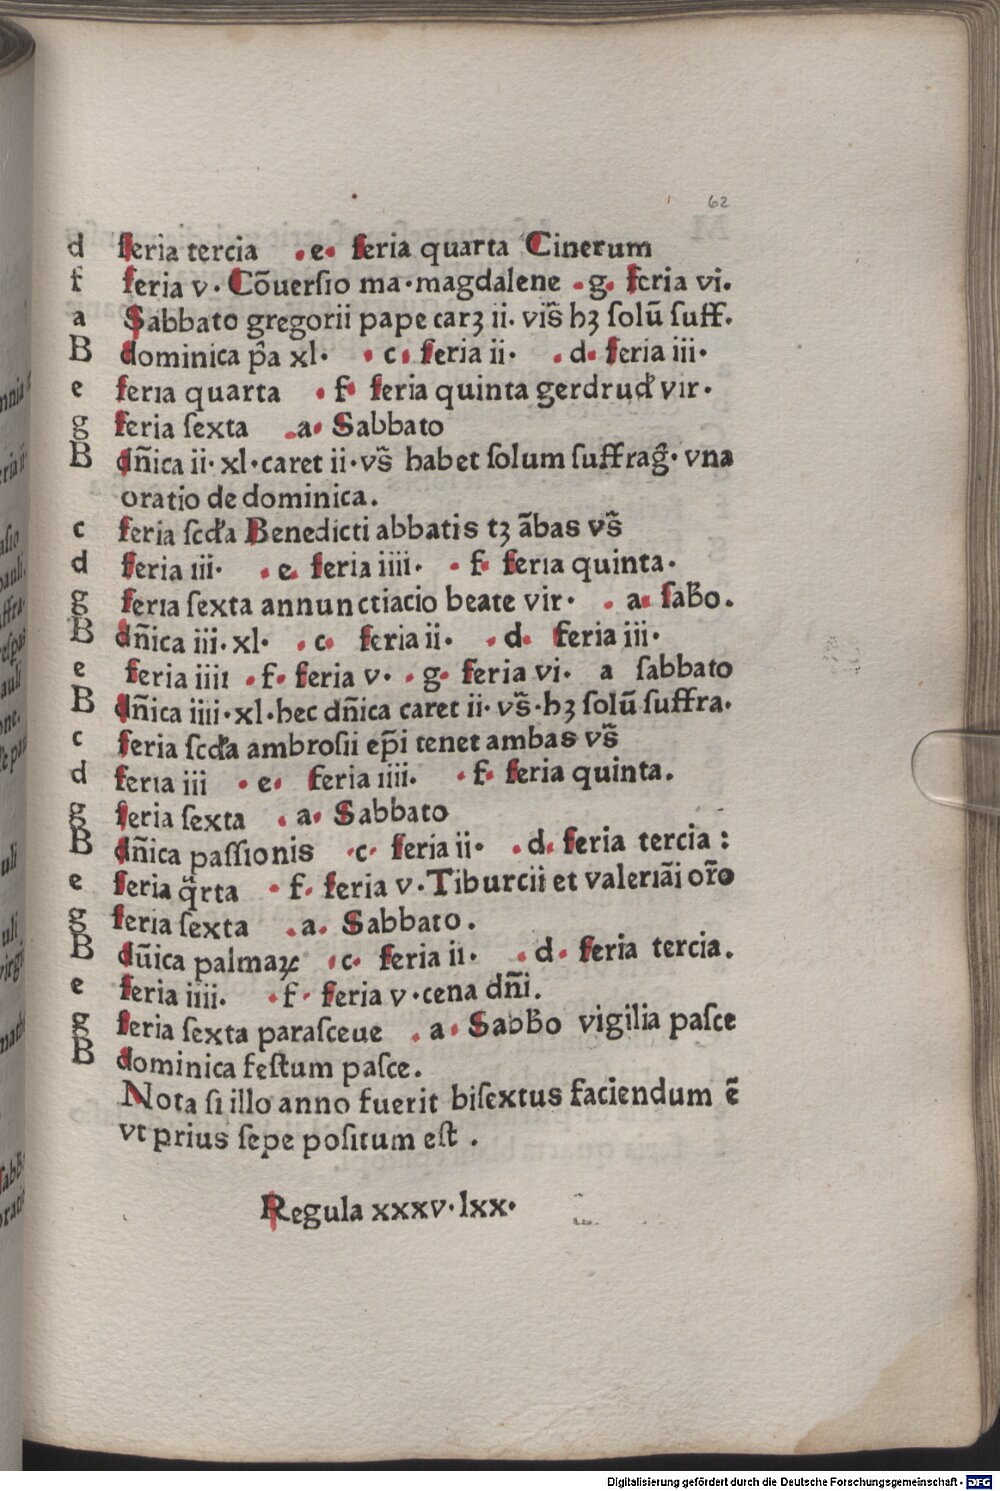 62
d feria tercia .e. feria quarta Cinerum
f feria v. Cōuersio ma.magdalene .g. feria vi.
a Sabbato gregorii pape carꝫ ii. vis̄ hꝫ solū suff.
B dominica p̄a xl. .c. feria ii. .d. feria iii.
e feria quarta .f. feria quinta gerdrud vir.
g feria sexta .a. Sabbato
B dn̄ica ii. xl.caret ii.vs̄ habet solum suffrag̃. vna
oratio de dominica.
c feria scd̄a Benedicti abbatis tꝫ ābas vs̄
d feria iii. .e. feria iiii. .f. feria quinta.
g feria sexta annunctiacio beate vir. .a. sab̄o.
B dn̄ica iii. xl. .c. feria ii. .d. feria iii.
e feria iiii .f. feria v. .g. feria vi. a sabbato
B dn̄ica iiii.xl.hec dn̄ica caret ii.vs̄.hꝫ solū suffra.
c feria scd̄a ambrosii ep̄i tenet ambas vs̄
d feria iii .e. feria iiii. .f. feria quinta.
g feria sexta .a. Sabbato
B dn̄ica passionis .c. feria ii. .d. feria tercia :
e feria q̄rta .f. feria v.Tiburcii et valeriāi or̄o
g feria sexta .a. Sabbato.
B dūica palmaꝝ .c. feria ii. .d. feria tercia.
e feria iiii. .f. feria v.cena dn̄i.
g feria sexta parasceue .a. Sabb̄o vigilia pasce
B dominica festum pasce.
Nota si illo anno fuerit bisextus faciendum ē
vt prius sepe positum est .
Regula xxxv.lxx.
Digitalisierung gefördert durch die Deutsche Forschungsgemeinschaft - DFG